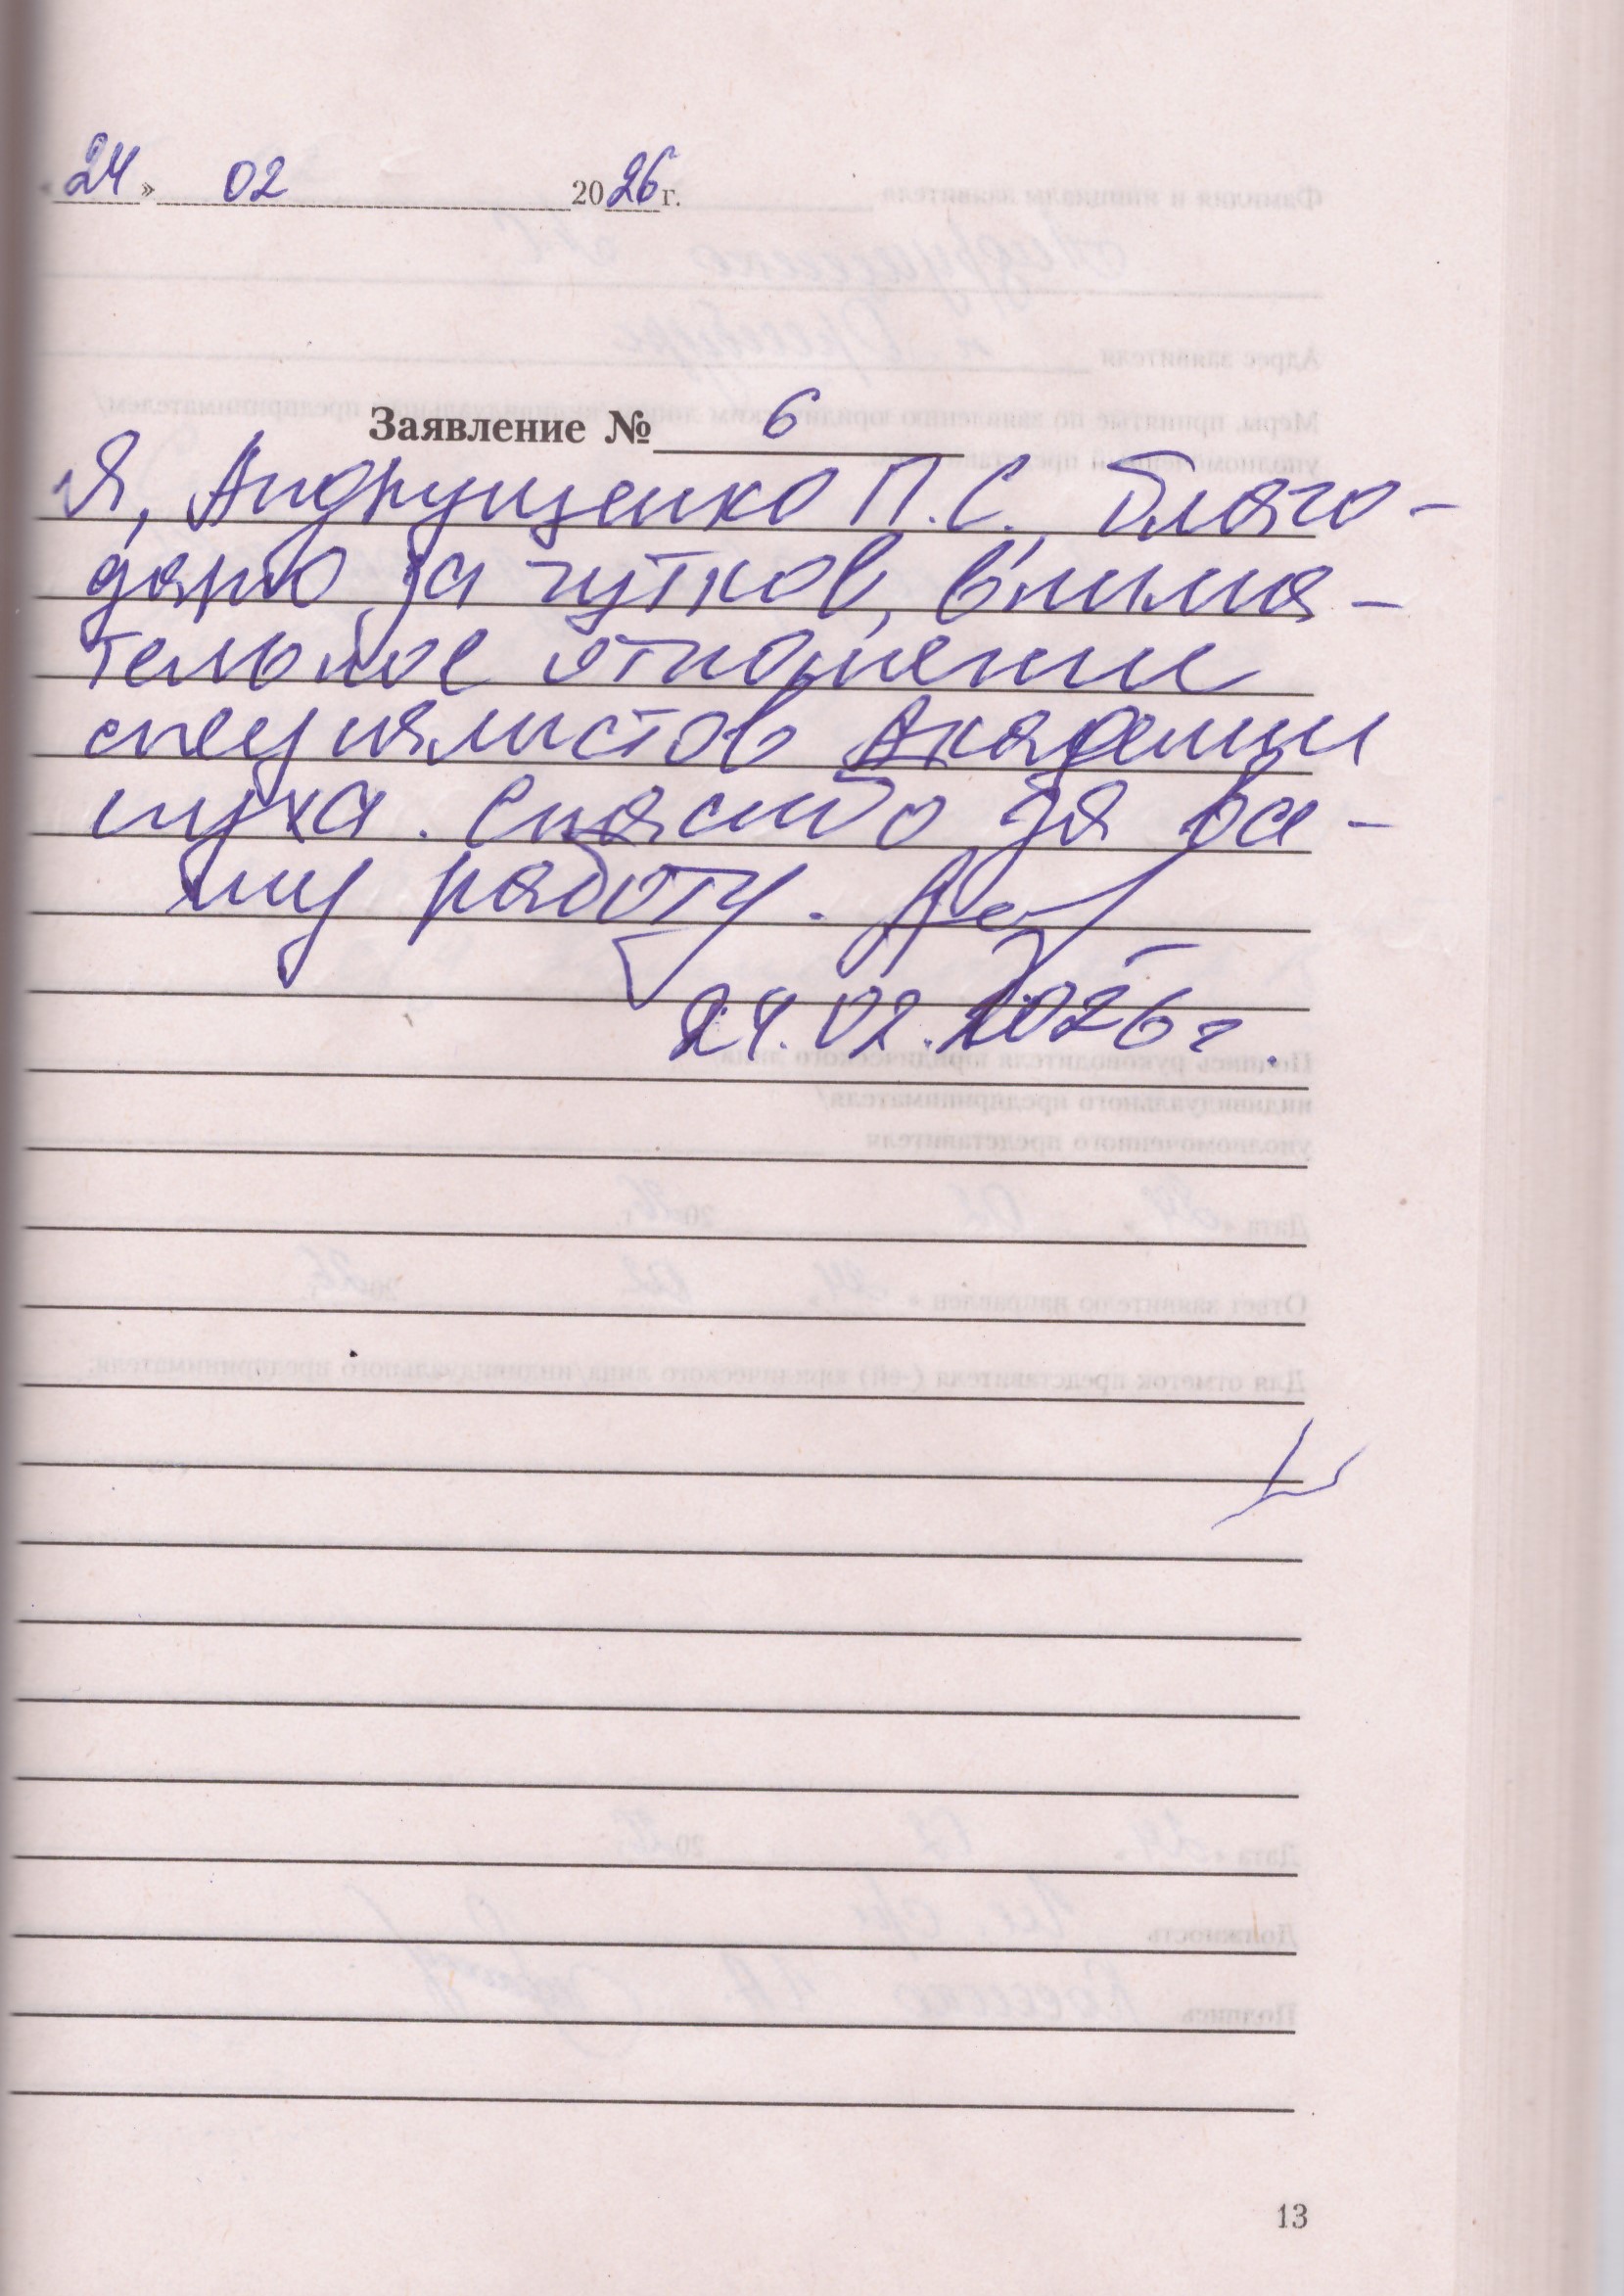 «24» 02 2026 г.
Заявление № 6
Я, Андрущенко П.С. благо-
дарю за чуткое, внима-
тельное отношение
специалистов Академии
слуха. Спасибо за ва-
шу работу.
24.02.2026 г.
13